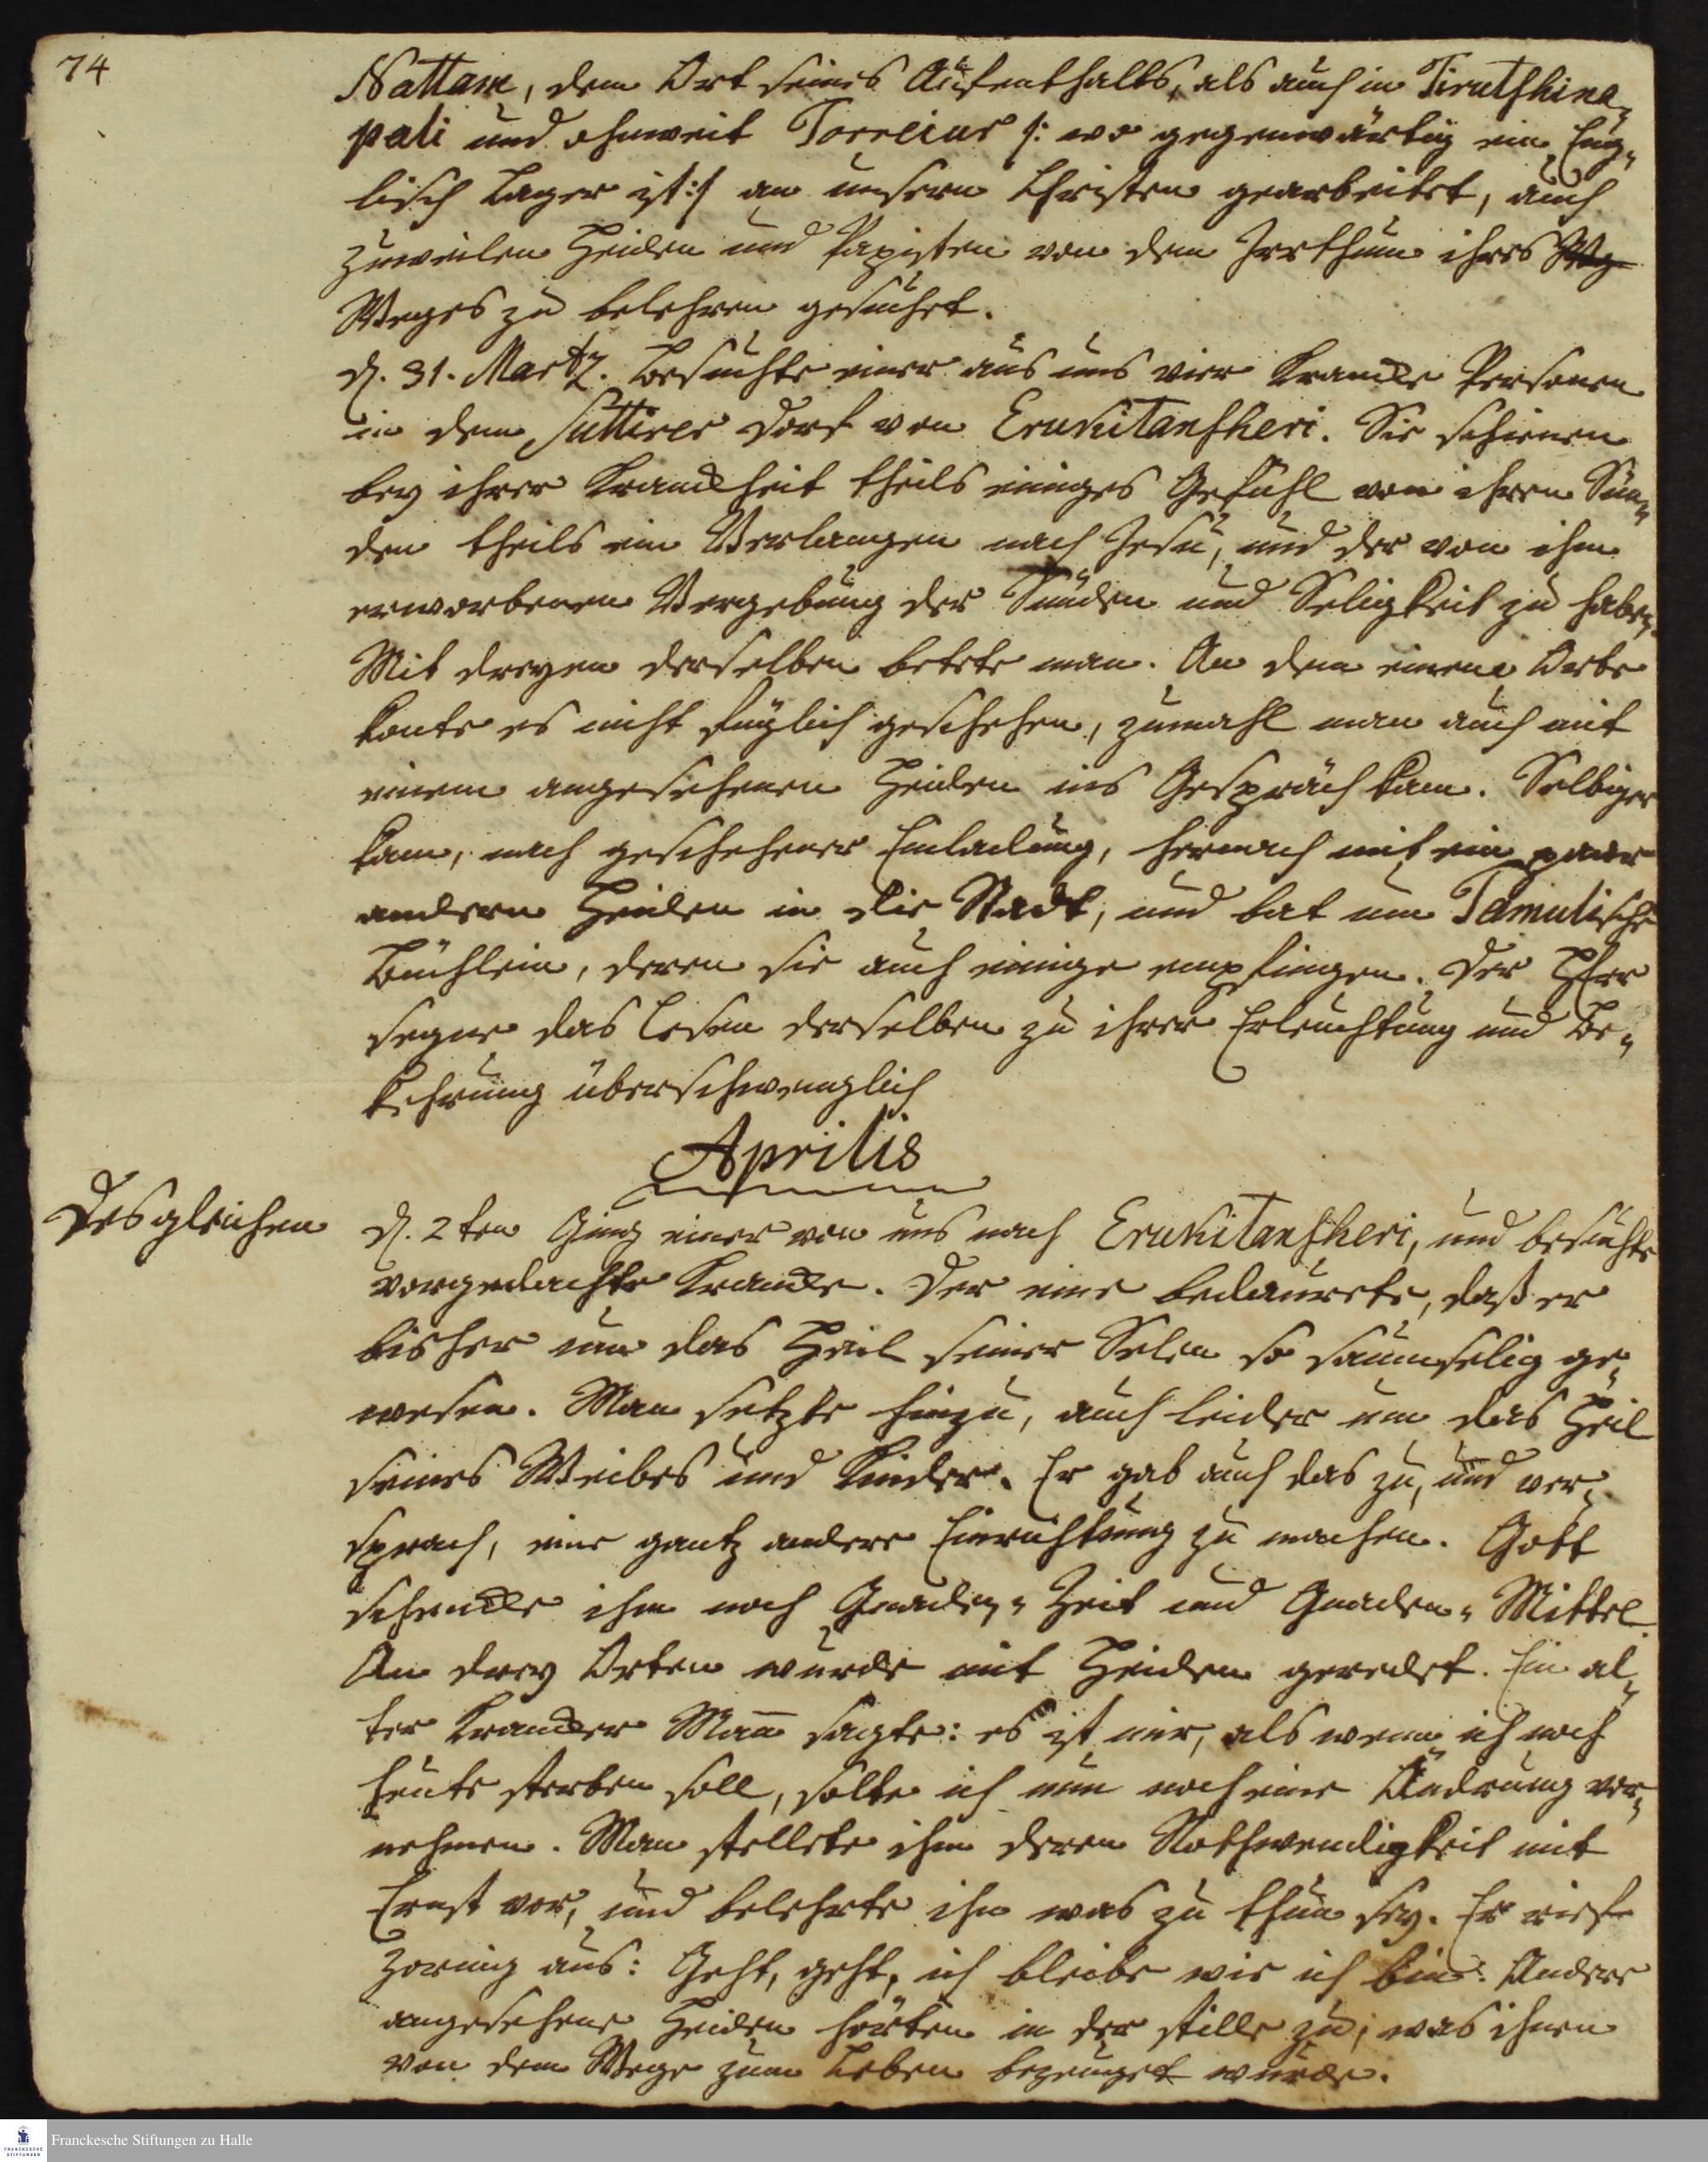 74
Nattam, dem Ort seines Aufenthalts, als auch in Tirutschina-
pali und ohnweit Torreiur /: wo gegenwärtig ein Eng-
lisch Lager ist :/ an unsern Christen gearbeitet, auch
zuweilen Heiden und Papisten von dem Irrthum ihres Weg
Weges zu belehren gesuchet.
d. 31. Martz. Besuchte einer aus uns vier Krancke Personen
in dem Suttirer Dorf von Erukitanscheri. Sie schienen
bey ihrer Kranckheit theils einiges Gefühl von ihren Sün-
den theils ein Verlangen nach Jesu, und der von ihm
erworbenen Vergebung der Sünden und Seligkeit zu haben.
Mit dreyen derselben betete man. An dem einen Orte
konte es nicht füglich geschehen, zumahl man auch mit
einem angesehenen Heiden ins Gespräch kam. Selbiger
kam, nach geschehener Einladung, hernach mit ein paar
andern Heiden in die Stadt, und bat um Tamulische
Büchlein, deren sie auch einige empfingen. Der HErr
segne das Lesen derselben zu ihrer Erleuchtung und Be-
kehrung überschwenglich
Aprilis
Desgleichen
d. 2ten Ging einer von uns nach Erukitanscheri, und besuchte
vorgedachte Krancke. Der eine bedaurete, daß er
bisher um das Heil seiner Selen so saumselig ge-
wesen. Man setzte hinzu, auch leider um das Heil
seines Weibes und Kinder. Er gab auch das zu, und ver-
sprach, eine gantz andere Einrichtung zu machen. Gott
schencke ihm noch Gnaden-Zeit und Gnaden-Mittel.
An drey Orten wurde mit Heiden geredet. Ein al-
ter Krancker Mann sagte: es ist mir, als wenn ich noch
heute sterben soll, solte ich nun noch eine Ändrung vor-
nehmen. Man stellete ihm deren Nothwendigkeit mit
Ernst vor, und belehrte ihn was zu thun sey. Er rief
zornig aus: Geht, geht, ich bleibe wie ich bin. Andere
angesehene Heiden hörten in der stille zu, was ihnen
von dem Wege zum Leben bezeuget wurde.
Franckesche Stiftungen zu Halle